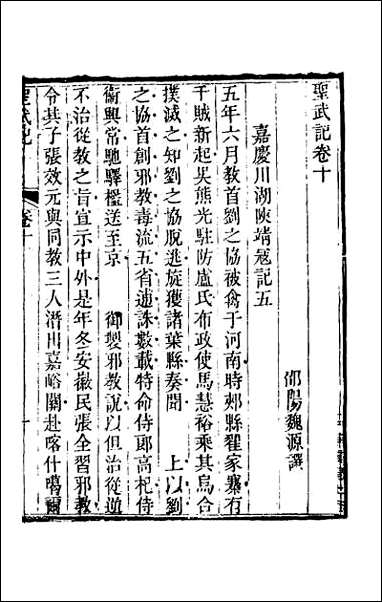 聖武記卷十
邵陽魏源譔
嘉慶川湖陝靖寇記五
五年六月教首劉之協被禽于河南時郟縣翟家寨有
千賊新起吳熊光駐防盧氏布政使馬慧裕乘其烏合
撲滅之知劉之協脫逃旋獲諸葉縣奏聞　上以劉
之協首創邪教毒流五省逋誅數載特命侍郎高杞侍
衛興常馳驛檻送至京　御製邪教說以但治從逆
不治從教之旨宣示中外是年冬安徽民張全習邪教
令其子張效元與同教三人潛出嘉峪關赴喀什噶爾
聖武記
卷十
一